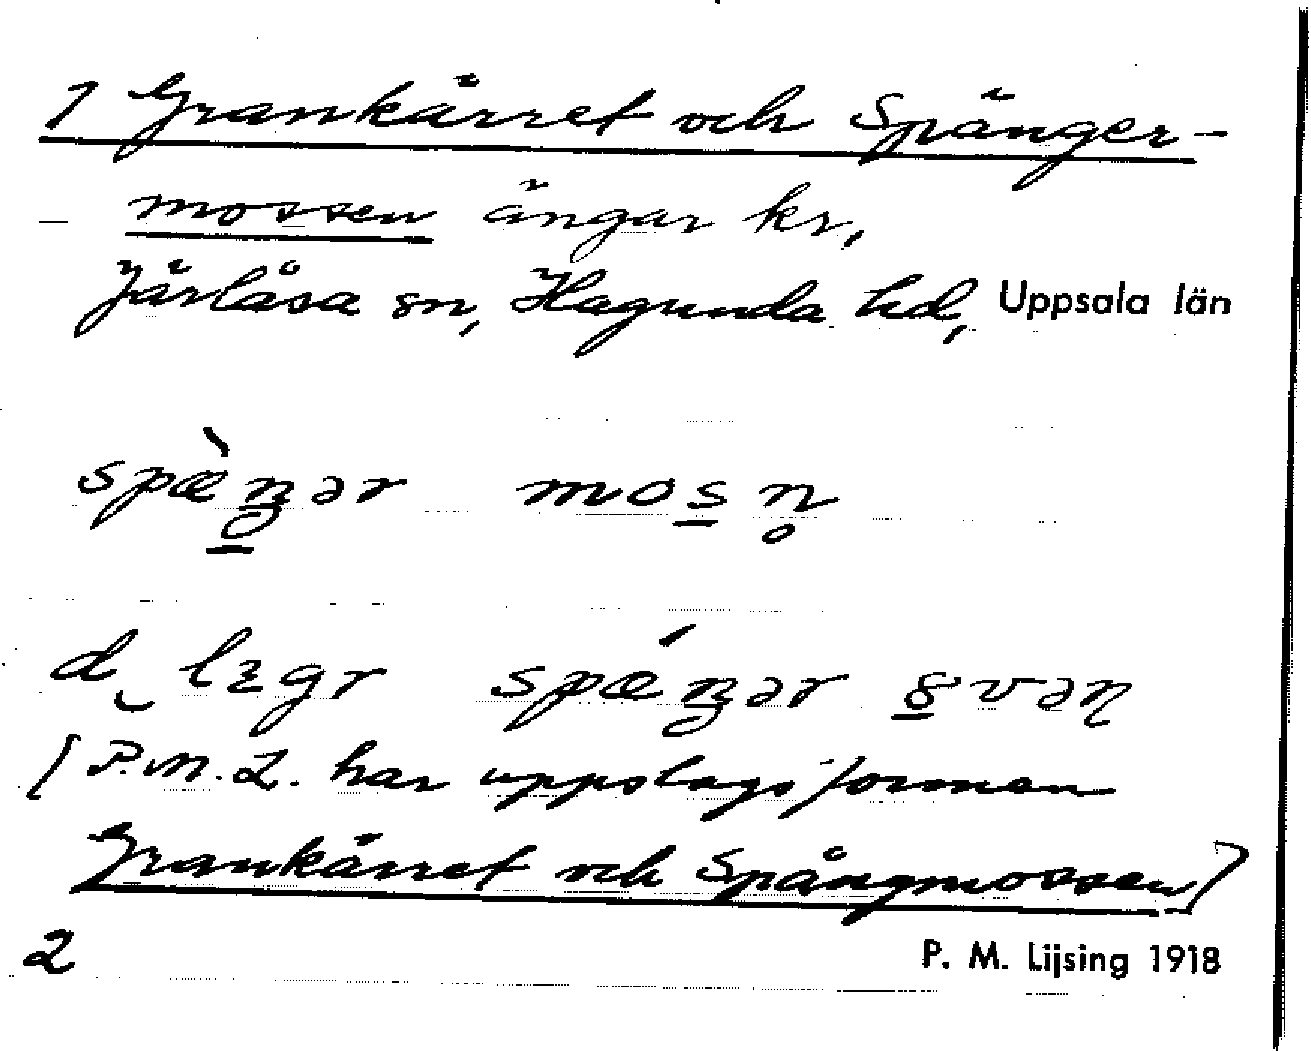 1 Grankärret och Spänger-
- mossen ängar kr,
Järlåsa sn, Hagunda hd, Uppsala län
spæ̀ŋər mosn̥
[P.M.L. har uppslagsformen
Grankärret och Spångmossen]
2 P. M. Lijsing 1918